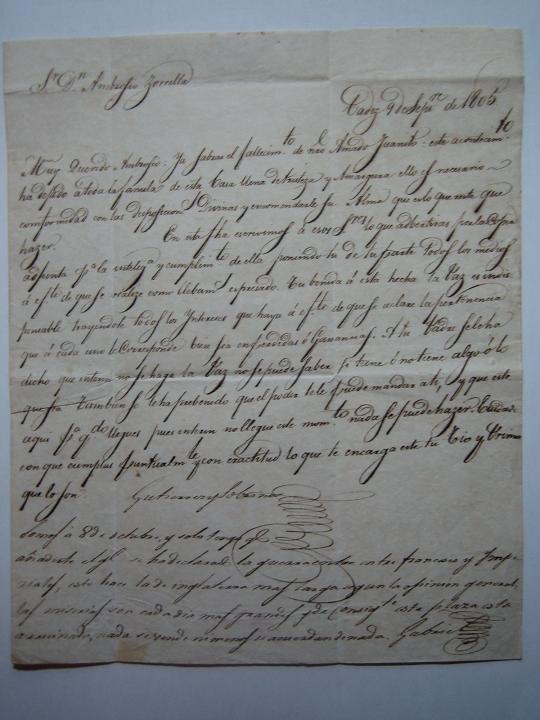 Sr. Dn. Ambrosio Zorrilla
Cadiz 9 de Sepre. de 1805
Muy Querido Ambrosio: Ya sabras el fallecimto. de nro Amado Juanito: este acontecimto
ha dejado a toda la familia de esta Casa llena de tristeza y Amargura ello es necesario
conformidad con las disposiciones Divinas y encomendarle su Alma que es lo que resta que
hazer.
En esta fha escrivimos á esos Sres. lo que advertiras por la Copia
adjunta pa. la y cumplimto. de ella poniendo tu de tu parte todos los medios
á efto. de que se realize como llebam. expresado. Tu benida á esta hecha la Paz es indis
pensable trayendote todos los Intereses que haya á efto. de que se aclare la pertenencia
que á cada uno le Corresponde bien sea en perdidas ó Ganancias. A tu Padre se le ha
dicho que interin no se haga la Paz no se puede saber si tiene ó no tiene algo ó lo
que sea Tambien se le ha prebenido que el poder te le puede mandar a ti, y que este
aqui pa. qdo. llegues pues interin no llegue este momto. nada se puede hazer. Cuida
con que cumplas puntualmte. y con exactitud lo que te encarga este tu Tio y Primo
que lo son
Gutierrez y Sobrino
Somos á 8 de octubre, y solo tengo qe.
añadirte el qe. se ha declarado la guerra entre los franceses y Impe
riales, esto hace la de inglaterra mas larga segun la opinion general,
las miserias son cada dia mas grandes y de consigte. esta plaza esta
arruinada, nada se vende ni menos se acuerdan de nada. Gabriel